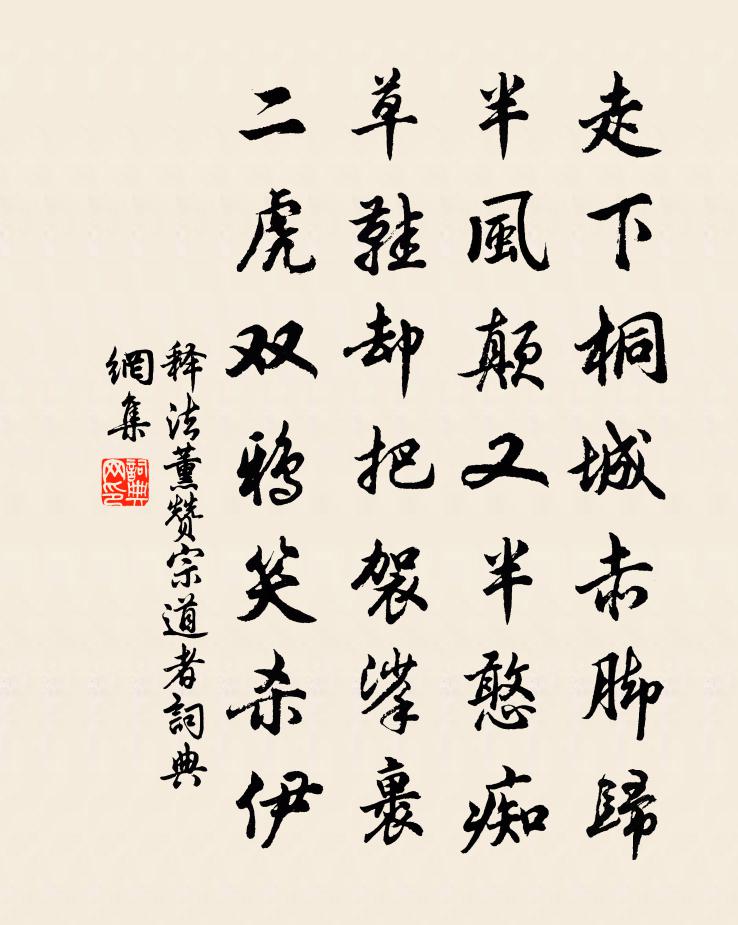 走下桐城赤脚歸
半風顛又半憨痴
草鞋却把袈裟裹
二虎双鴉笑杀伊
释法薰赞宗道者詞典
網集
詞典
网印